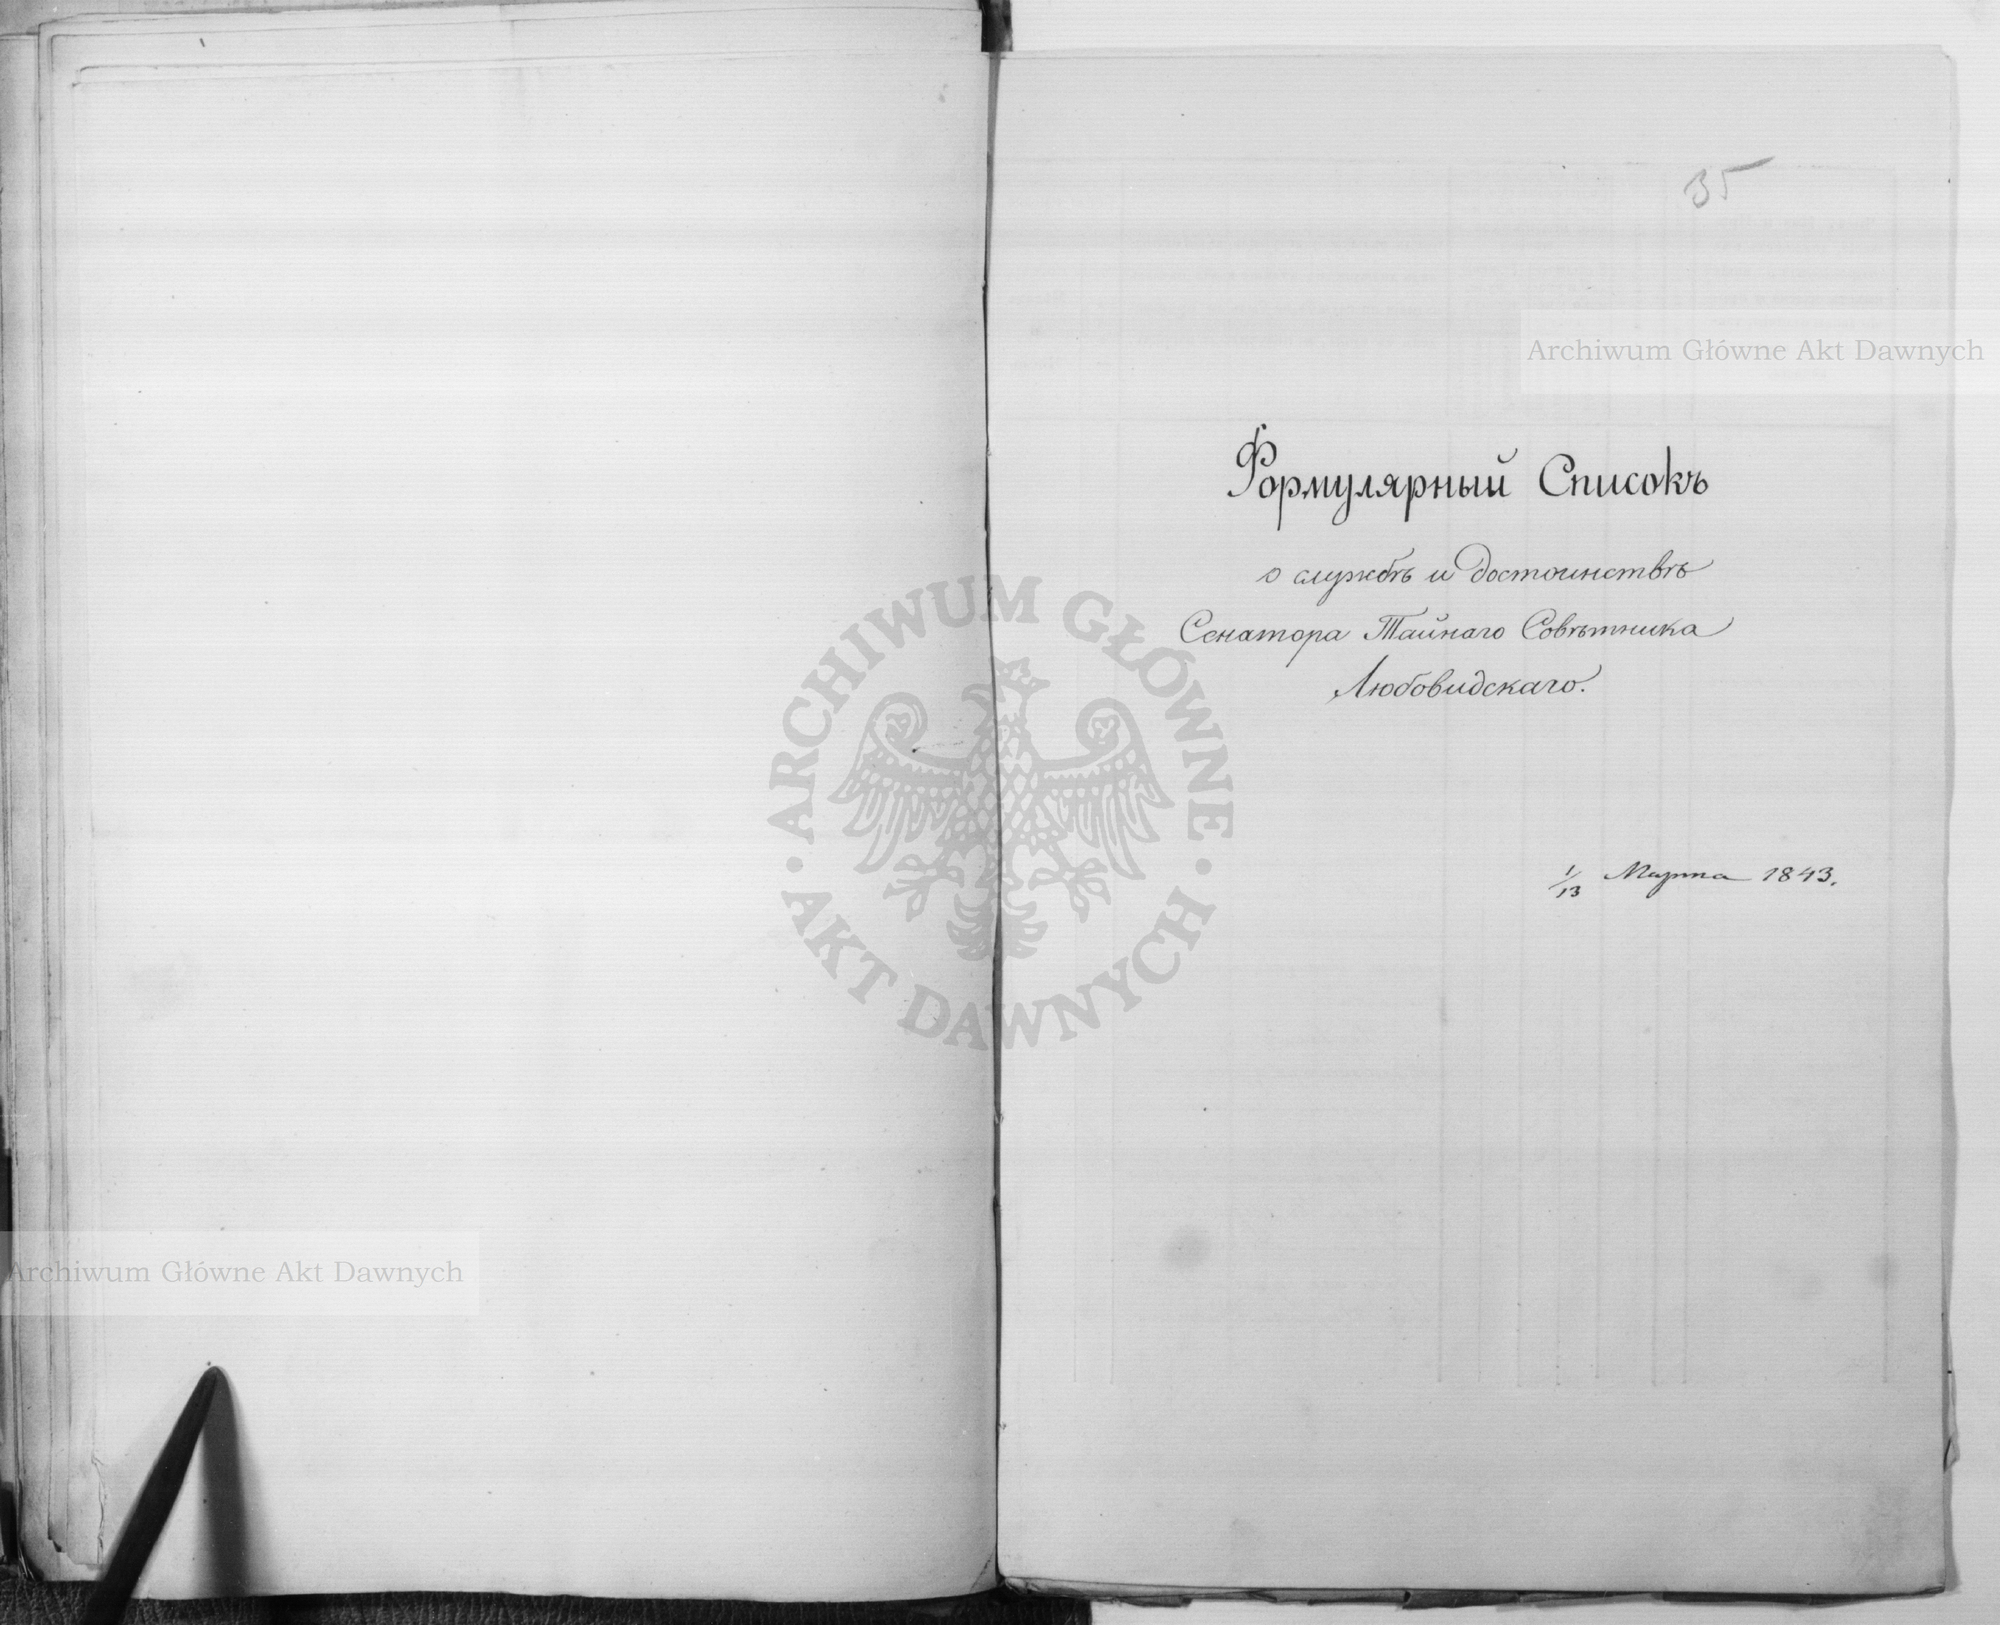 35
Archiwum Główne Akt Dawnych
Формулярный Списокъ
о службѣ и достоинствѣ
Сенатора Тайнаго Совѣтника
Любовидскаго.
1/13 Марта 1843.
ARCHIWUM GŁÓWNE · AKT DAWNYCH ·
Archiwum Główne Akt Dawnych